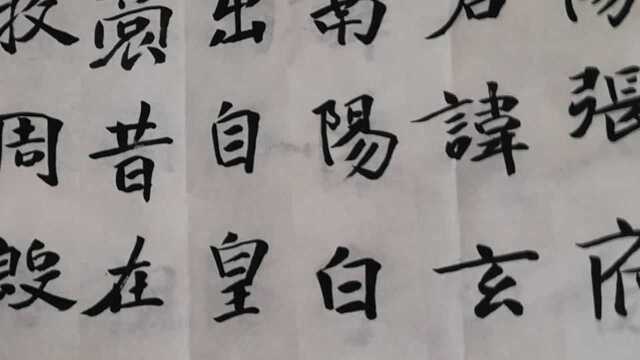 陽張府
君諱玄
南陽白
出自皇
裔昔在
牧周殷